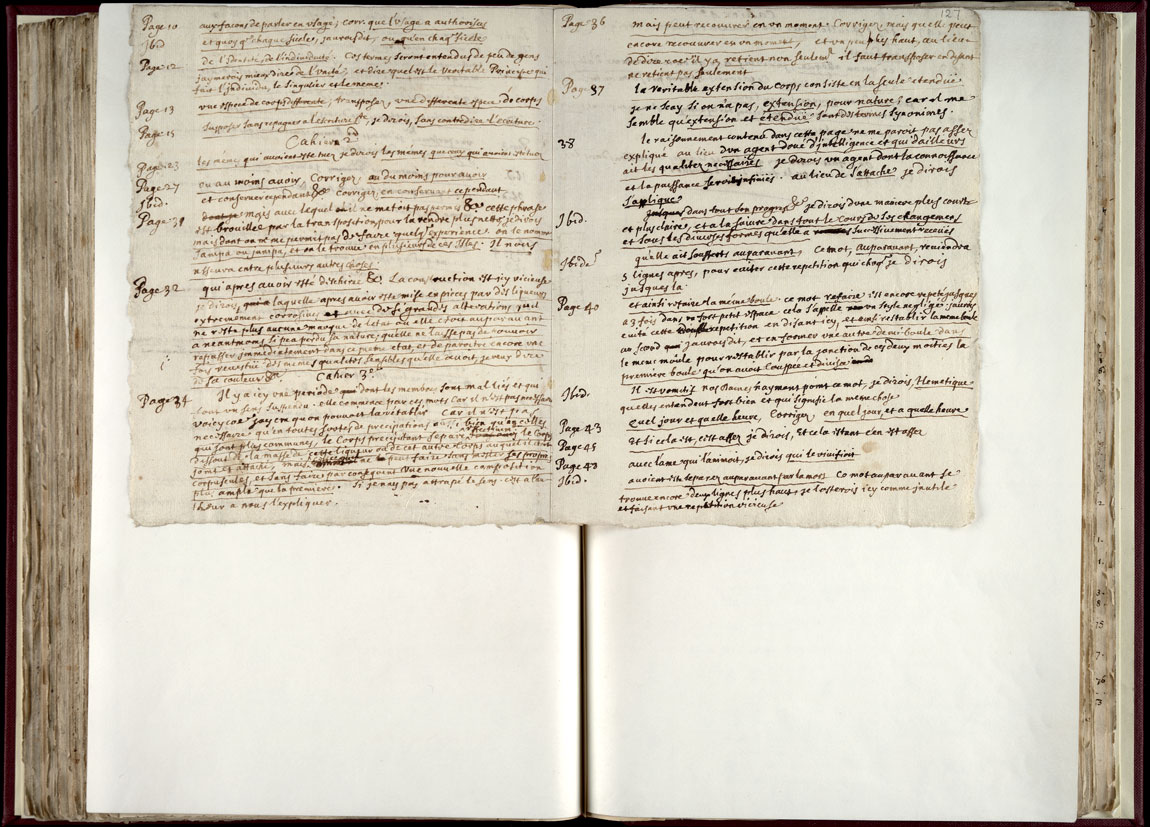 127
Page 10 aux façons de parler en usage; corr. que l'usage a authorisées
Ibid et quoy q̃ chaque siecle, j'aurois dit, ou qu'en chaq̃ siecle
de l'Identité, de l'individuité. Ces termes seront entendus de peu de gens
Page 12 j'aymerois mieux dire de l'unité, et dire quel est le veritable Principe qui
fait l'individu, le singulier et le meme
Page 13 une espece de corps differente, transposez, une differente espece de corps
Page 15 supposer sans repugner a l'Escriture &c, je dirois, sans contredire l'escriture.
Cahier 2d
Page 23 les memes qui avoient esté tuez je dirois les mêmes que ceux qui avoient esté tuez
Page 27 ou au moins avoir, Corrigez, ou du moins pour avoir
Ibid. et conserver cependant &c Corrigez, en conservant cependant
Page 31 mais avec lequel il ne m'etoit pas permis &c cette phrase
est brouillée par la transposition pour la rendre plus nette je dirois
mais dont on ne me permit pas de faire quelq̃ experience. on le nomme
Janipa ou junipa, et on le trouve en plusieurs de ces Isles. Il n'est
entre plusieurs autres choses.
Page 32 qui aprés avoir esté dechiré &c La construction est icy vicieuse
je dirois, laquelle aprés avoir esté mise en pieces par des liqueurs
extremement corrosives et avec de si grandes alterations, qu'il
ne reste plus aucune marque de l'etat ou elle etoit auparavant
a neantmoins si peu perdu sa nature, qu'elle ne laisse pas de pouvoir
repasser immediatement dans ce même etat et de paroitre encore une
fois revestüe des memes qualités sensibles qu'elle avoit, je veux dire
de sa couleur &c.
Cahier 3e
Page 34 Il y a icy une periode dont les membres sont mal liés et qui
font un sens suspendu. elle commence par ces mots Car il n'est pas necessaire
voicy comme je croy qu'on pouvoit la restablir Car il n'est pas
necessaire qu'en toutes sortes de precipitations aussi bien qu'en celles
qui sont plus communes, le Corps precipitant separe le Corps
dissout de la masse de cette liqueur ou de cet autre Corps auquel il etoit
joint et attaché, mais il peut faire sans oster ses propres
corpuscules, et sans faire par consequent une nouvelle composition
plus ample que la premiere. Si je n'ay pas attrapé le sens c'est a l'au-
theur a nous l'expliquer.
Page 36 mais peut recouvrer en un moment. Corrigez, mais qu'elle peut
encore recouvrer en un moment, et un peu plus haut, au lieu
de dire l'or il y a, retient non seulemt il faut transposer en disant
ne retient pas seulement
Page 37 la veritable extension du Corps consiste en la seule etendüe
je ne scay si on n'a pas, extension, pour nature; car il me
semble qu'extension et etendüe sont des termes synonimes.
38 le raisonnement contenu dans cette page ne me paroit pas assez
expliqué au lieu d'un agent doüé d'intelligence et qui d'ailleurs
ait les qualitez necessaires, je dirois un agent dont la connoissance
et la puissance seroit infinies. au lieu de s'attache je dirois
s'applique
Ibid. dans tout son progrés &c je dirois d'une maniere plus courte
et plus claire, et a la suivre dans tout le cours de ses changemens
et sous les diverses formes qu'elle a successivement receües
Ibidem qu'elle ait souffert auparavant, Ce mot, auparavant, reviendra
5 lignes aprés, pour eviter cette repetition qui choq̃ je dirois
jusques la.
Page 40 et ainsi refaire la même boule ce mot refaire est encore repeté jusques
a 3 fois dans un fort petit espace cela s'appelle un style negligé, j'aurois
evité cette repetition en disant icy, et ainsi restablir la meme boule
au second j'aurois dit, et en former une autre demi boule dans
le même moule pour restablir par la jonction de ces deux moitiés la
premiere boule qu'on avoit couppée et divisée
Ibid. Il est vomitif nos dames n'ayment point ce mot, je dirois, Hemetique
qu'elles entendent fort bien et qui signifie la même chose
Page 43 Quel jour et quelle heure, Corrigez, en quel jour, et a quelle heure
Page 45 Et si cela est, c'est assez je dirois, Et cela etant c'en est assez
Page 48 avec l'ame qui l'animoit, je dirois qui le vivifioit
Ibid. avoient esté separez auparavant par la mort. Ce mot auparavant se
trouve encore deux lignes plus haut, je l'osterois icy comme inutile
et faisant une repetition vicieuse